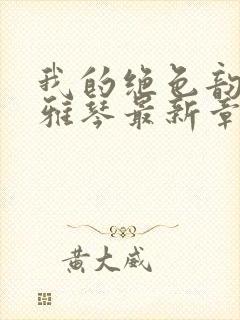 我的绝色韵
雅琴最新章
黄大威